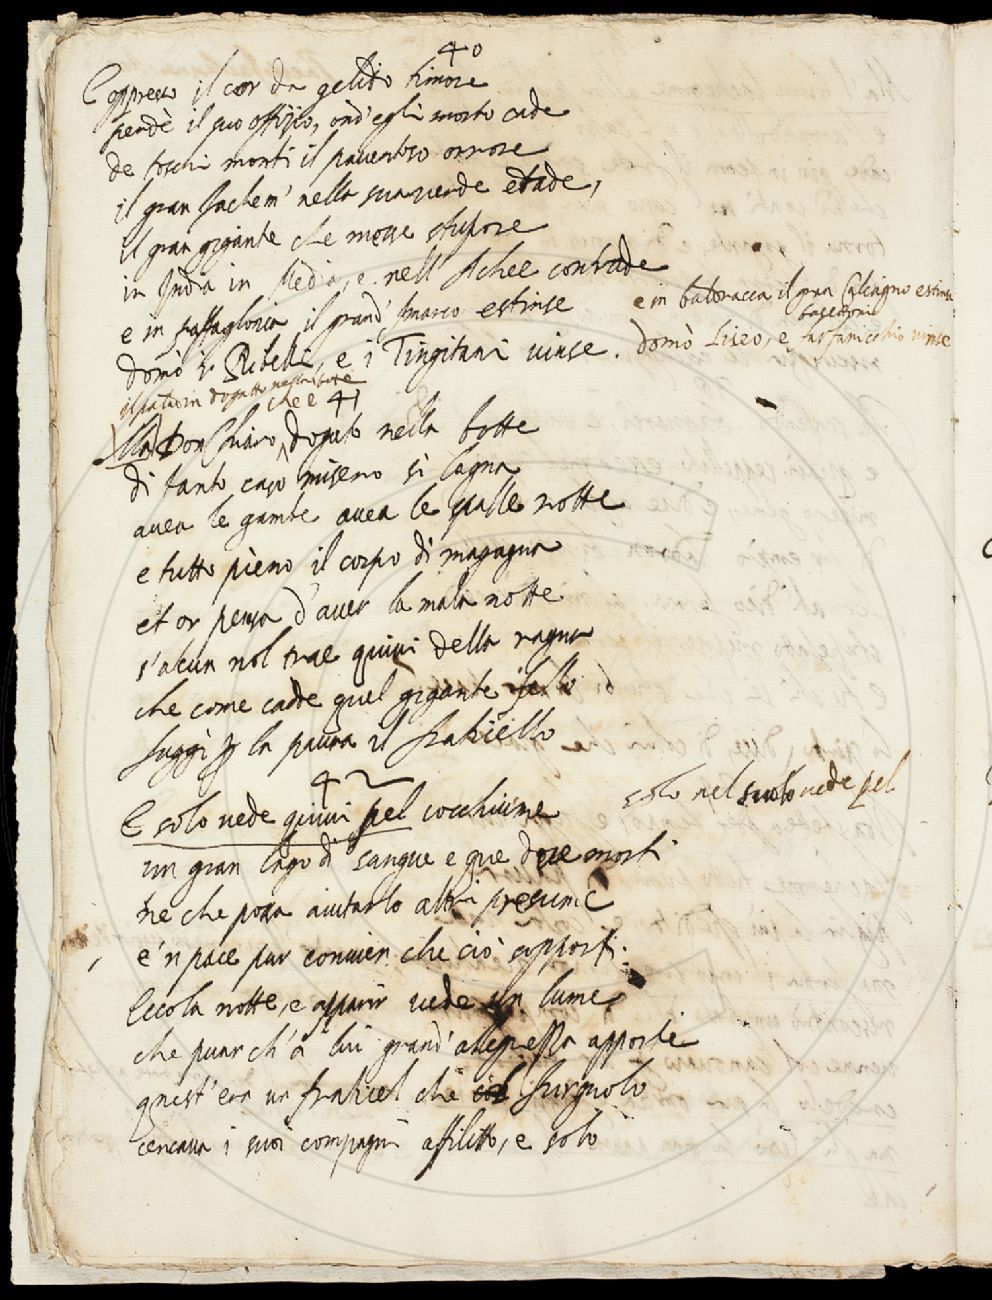 40
E oppresso il cor da gelido timore
perdè il suo offizio, ond'egli morto cade
de toschi monti il paventoso orrore
il gran Sachem' nella sua verde etade,
il gran gigante che mosse stupore
in India in Media, e nell' Achee contrade
e in il grand' Smarco estinse
e in baldracca il gran Calcagno estinse
domò i Ribelli, e i Tingitani vinse.
domò Liseo, e vinse
che è 41
Ma Don Chiaro dogato nella botte
di tanto caso misero si lagna
avea le gambe avea le spalle rotte
e tutto pieno il corpo di magagna
et or pensa d'aver la mala notte
s'alcun nol trae quivi della ragna
che come cadde quel gigante fello
fuggì p la paura il fraticello
42
E solo vede quivi pel cocchiume
solo nel suolo vede pel
un gran lago di sangue e que due morti
ne che possa aiutarlo altri presume
e'n pace pur convien che ciò sopporti.
Ecco la notte, e apparir vede un lume
che par ch'a lui grand'allegrezza apporti
quest'era un fraticel che col furgnolo
cercava i suoi compagni afflitto, e solo